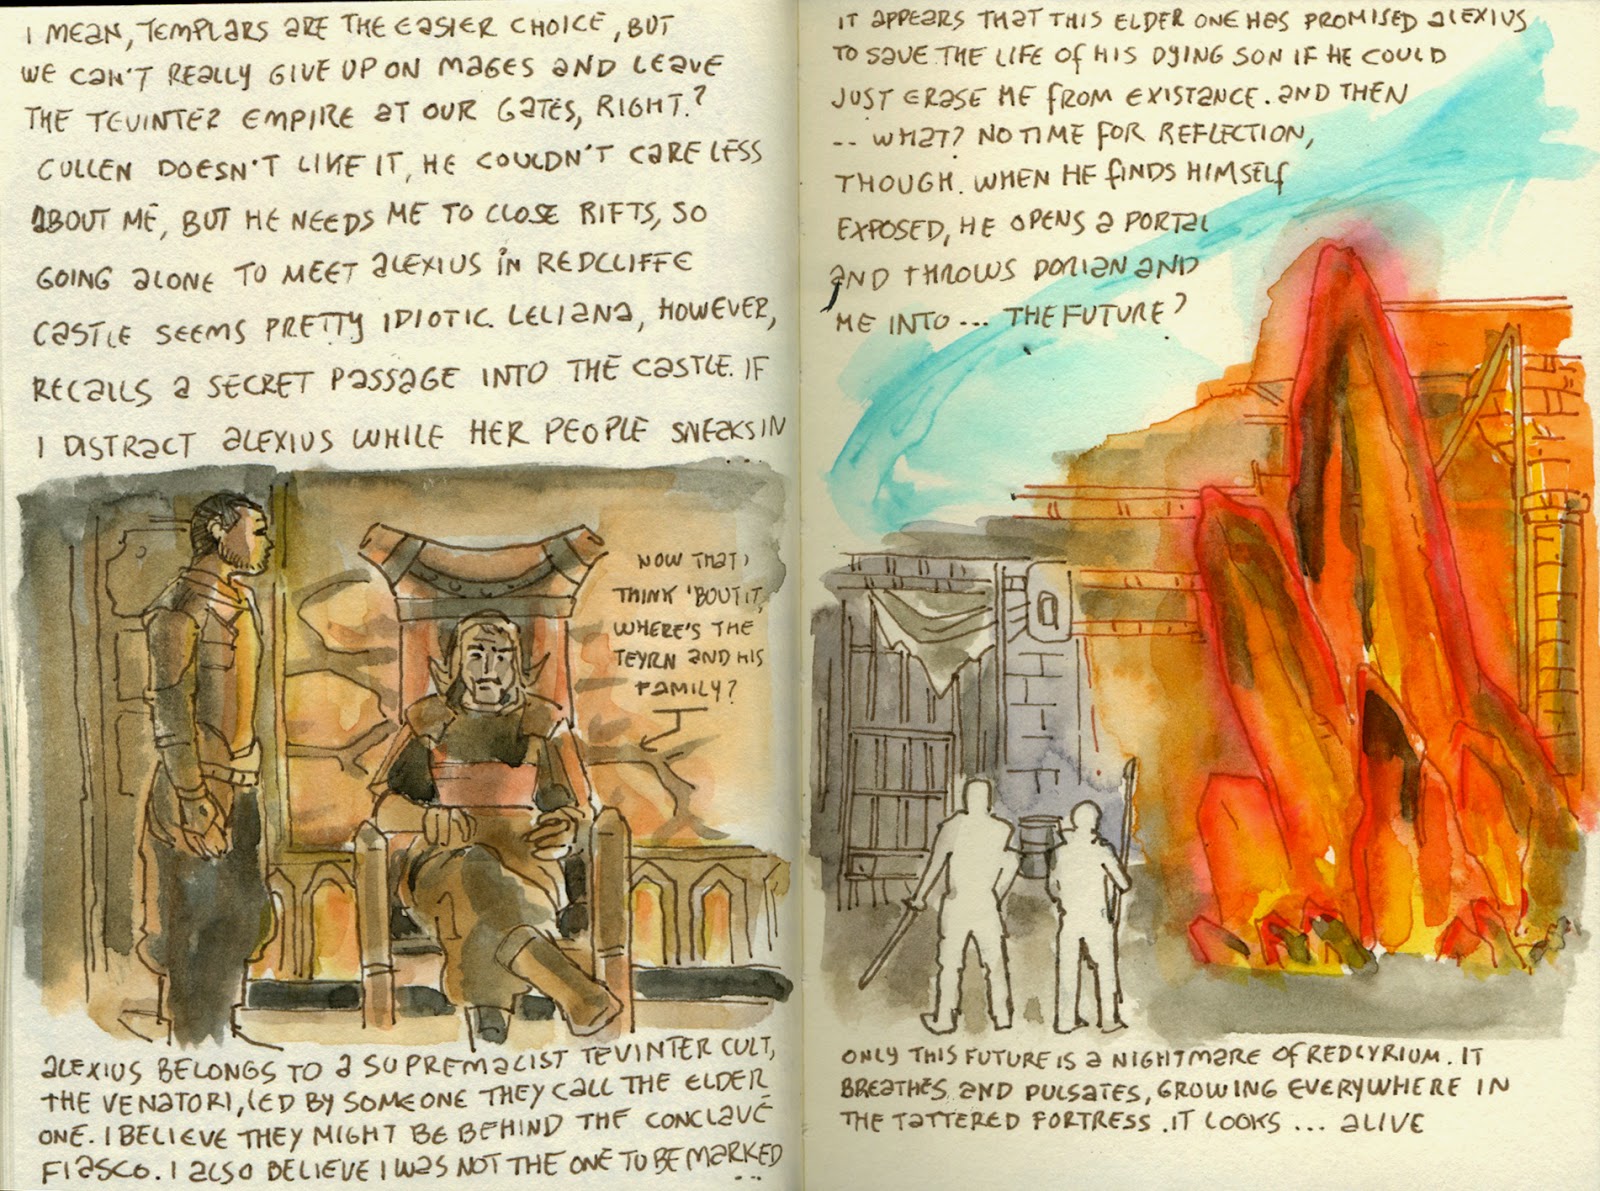 I MEAN, TEMPLARS ARE THE EASIER CHOICE, BUT
WE CAN'T REALLY GIVE UP ON MAGES AND LEAVE
THE TEVINTER EMPIRE AT OUR GATES, RIGHT?
CULLEN DOESN'T LIKE IT, HE COULDN'T CARE LESS
ABOUT ME, BUT HE NEEDS ME TO CLOSE RIFTS, SO
GOING ALONE TO MEET ALEXIUS IN REDCLIFFE
CASTLE SEEMS PRETTY IDIOTIC. LELIANA, HOWEVER,
RECALLS A SECRET PASSAGE INTO THE CASTLE. IF
I DISTRACT ALEXIUS WHILE HER PEOPLE SNEAKS IN
...
NOW THAT I
THINK 'BOUT IT,
WHERE'S THE
TEYRN AND HIS
FAMILY?
ALEXIUS BELONGS TO A SUPREMACIST TEVINTER CULT,
THE VENATORI, LED BY SOMEONE THEY CALL THE ELDER
ONE. I BELIEVE THEY MIGHT BE BEHIND THE CONCLAVE
FIASCO. I ALSO BELIEVE I WAS NOT THE ONE TO BE MARKED
...
IT APPEARS THAT THIS ELDER ONE HAS PROMISED ALEXIUS
TO SAVE THE LIFE OF HIS DYING SON IF HE COULD
JUST ERASE ME FROM EXISTANCE. AND THEN
.. WHAT? NO TIME FOR REFLECTION,
THOUGH. WHEN HE FINDS HIMSELF
EXPOSED, HE OPENS A PORTAL
AND THROWS DORIAN AND
ME INTO ... THE FUTURE?
ONLY THIS FUTURE IS A NIGHTMARE OF RED LYRIUM. IT
BREATHES AND PULSATES, GROWING EVERYWHERE IN
THE TATTERED FORTRESS. IT LOOKS ... ALIVE